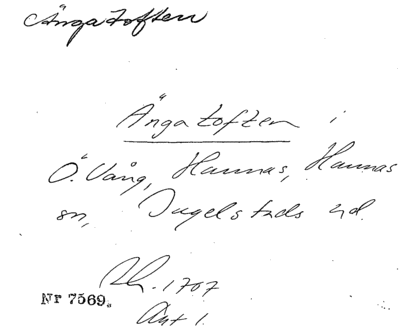 Ängatoften
Ängatoften i
Ö. Vång, Hannas, Hannas
sn, Ingelstads hd.
Rh. 1707
Nr 7569.
Akt 1.